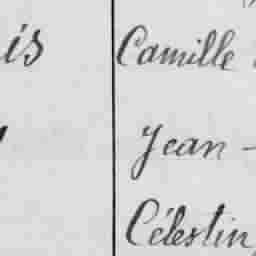 is Camille
Jean -
Célestin,